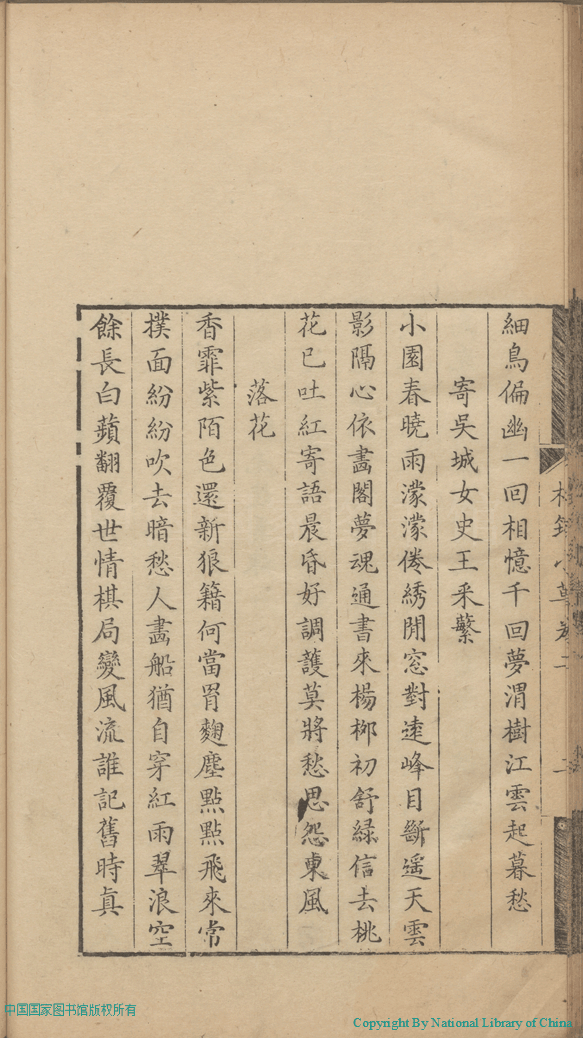 細鳥偏幽一回相憶千回夢渭樹江雲起暮愁
寄吳城女史王釆蘩
小園春曉雨濛濛倦綉閒窓對遠峰目斷遥天雲
影隔心依畵閣夢魂通書來楊柳初舒緑信去桃
花已吐紅寄語晨昏好調護莫將愁思怨東風
落花
香霏紫陌色還新狼籍何當罥麴塵點點飛來常
撲面紛紛吹去暗愁人畵船猶自穿紅雨翠浪空
餘長白蘋翻覆世情棋局變風流誰記舊時真
中国国家图书馆版权所有
Copyright By National Library of China